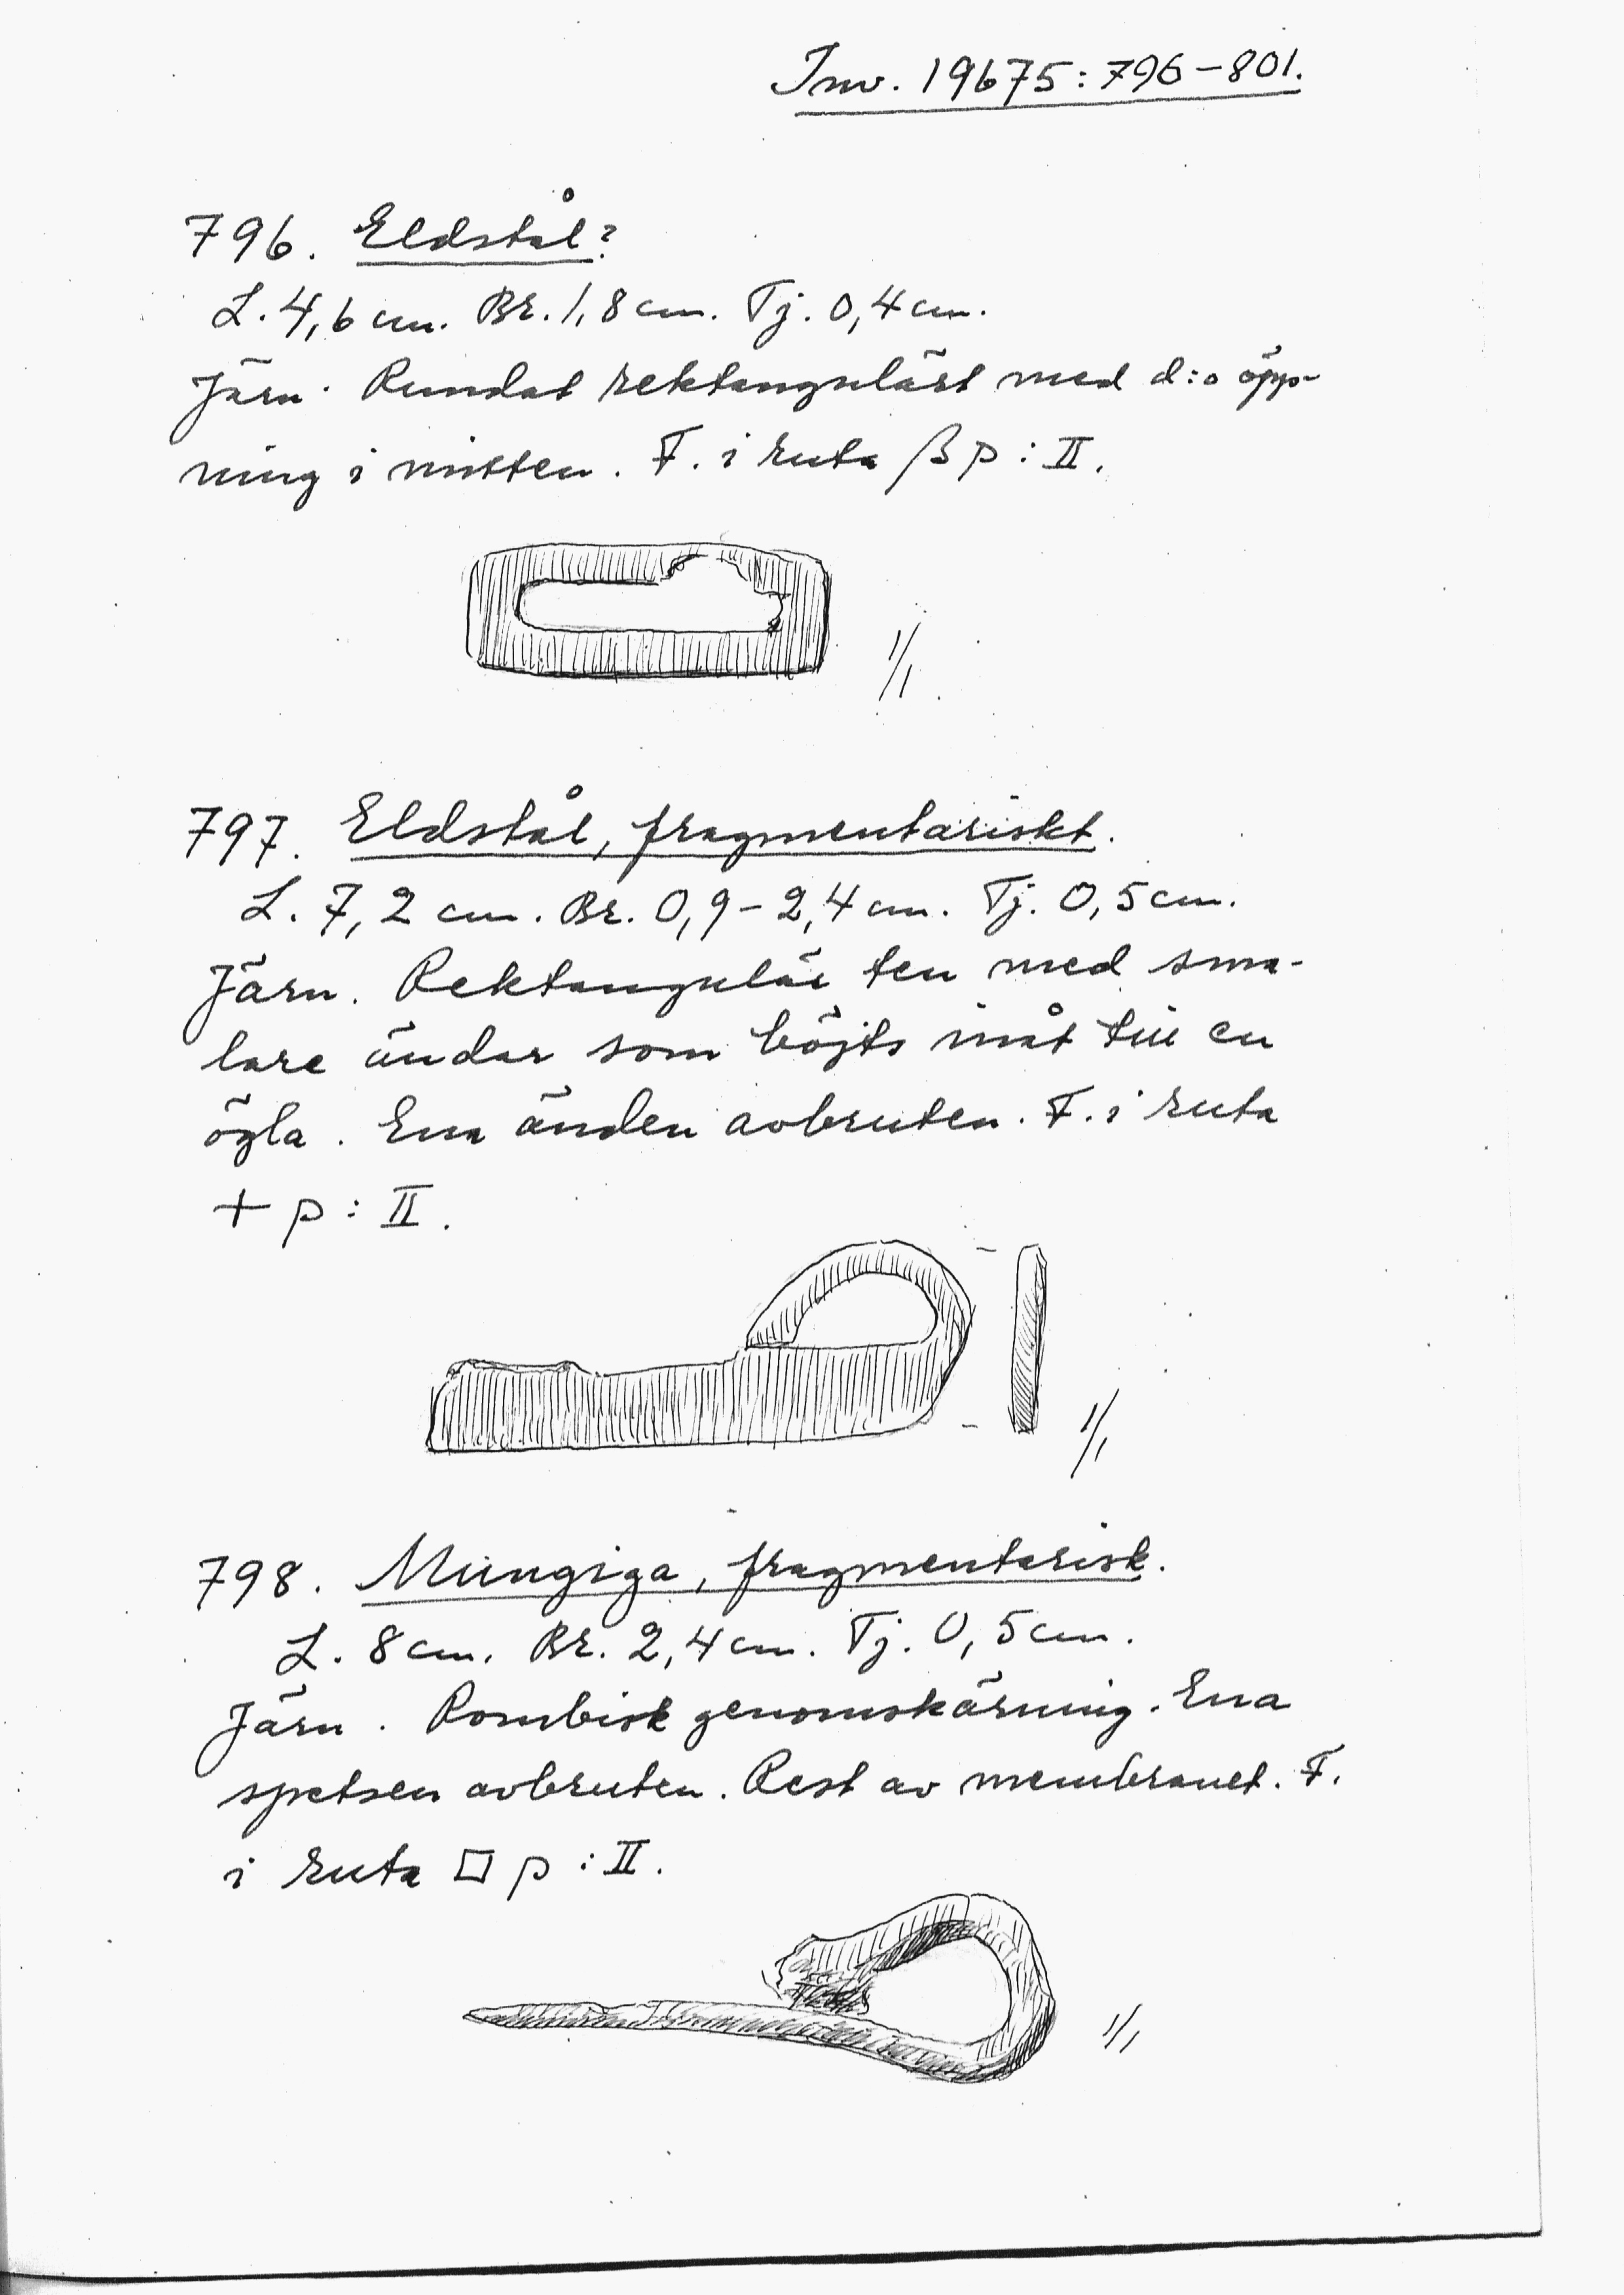 Inv. 19675:796-801.
796. Eldstål?
L. 4,6 cm. Br. 1,8 cm. Tj. 0,4 cm.
Järn. Rundat rektangulärt med d:o öpp-
ning i mitten. F. i ruta β p : II.
1/1
797. Eldstål, fragmentariskt.
L. 7,2 cm. Br. 0,9-2,4 cm. Tj. 0,5 cm.
Järn. Rektangulär ten med sma-
lare ändar som böjts inåt till en
ögla. Ena änden avbruten. F. i ruta
+ p : II.
1/1
798. Mungiga, fragmentarisk.
L. 8 cm. Br. 2,4 cm. Tj. 0,5 cm.
Järn. Rombisk genomskärning. Ena
spetsen avbruten. Rest av membranet. F.
i ruta □ p : II.
1/1